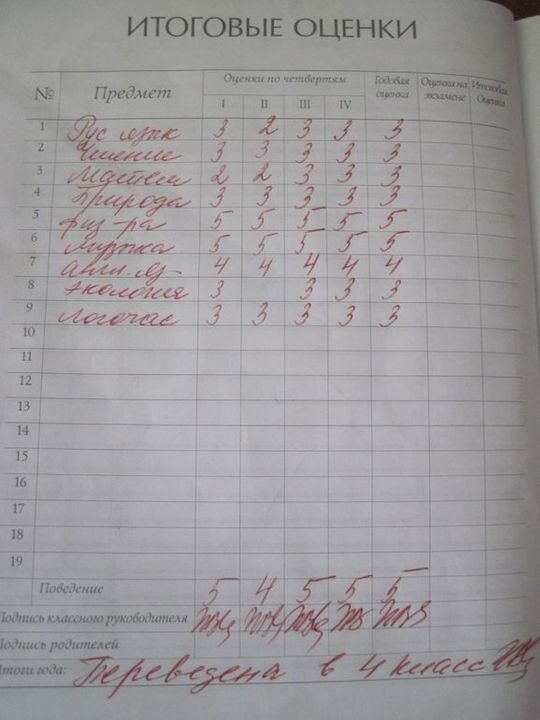 ИТОГОВЫЕ ОЦЕНКИ
№ Предмет Оценки по четвертям Годовая оценка Оценки на экзамене Итоговая Оценка
I II III IV
1 Рус. язык 3 2 3 3 3
2 Чтение 3 3 3 3 3
3 Матем 2 2 3 3 3
4 Природа 3 3 3 3 3
5 физ-ра 5 5 5 5 5
6 Музыка 5 5 5 5 5
7 англ. яз- 4 4 4 4 4
8 экология 3 3 3 3
9 логочас 3 3 3 3 3
10
11
12
13
14
15
16
17
18
19
Поведение 5 4 5 5 5
Подпись классного руководителя
Подпись родителей
Итоги года: Переведена в 4 класс